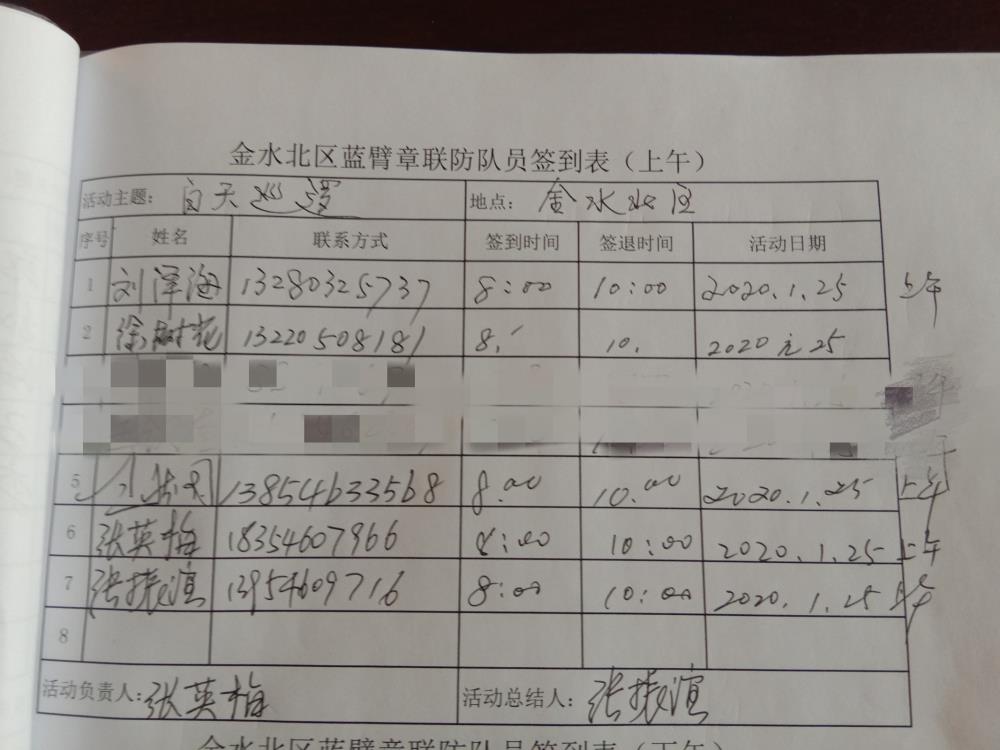 金水北区蓝臂章联防队员签到表（上午）
活动主题： 白天巡逻 地点： 金水北区
序号 姓名 联系方式 签到时间 签退时间 活动日期
1 刘泽海 13280325737 8:00 10:00 2020.1.25 上午
2 徐树花 13220508181 8. 10. 2020 元 25
5 13854633568 8.00 10.00 2020.1.25 上午
6 张英梅 18354607966 8:00 10:00 2020.1.25 上午
7 张振谊 13954609716 8:00 10:00 2020.1.25 上午
8
活动负责人：张英梅 活动总结人：张振谊
金水北区蓝臂章联防队员签到表（下午）